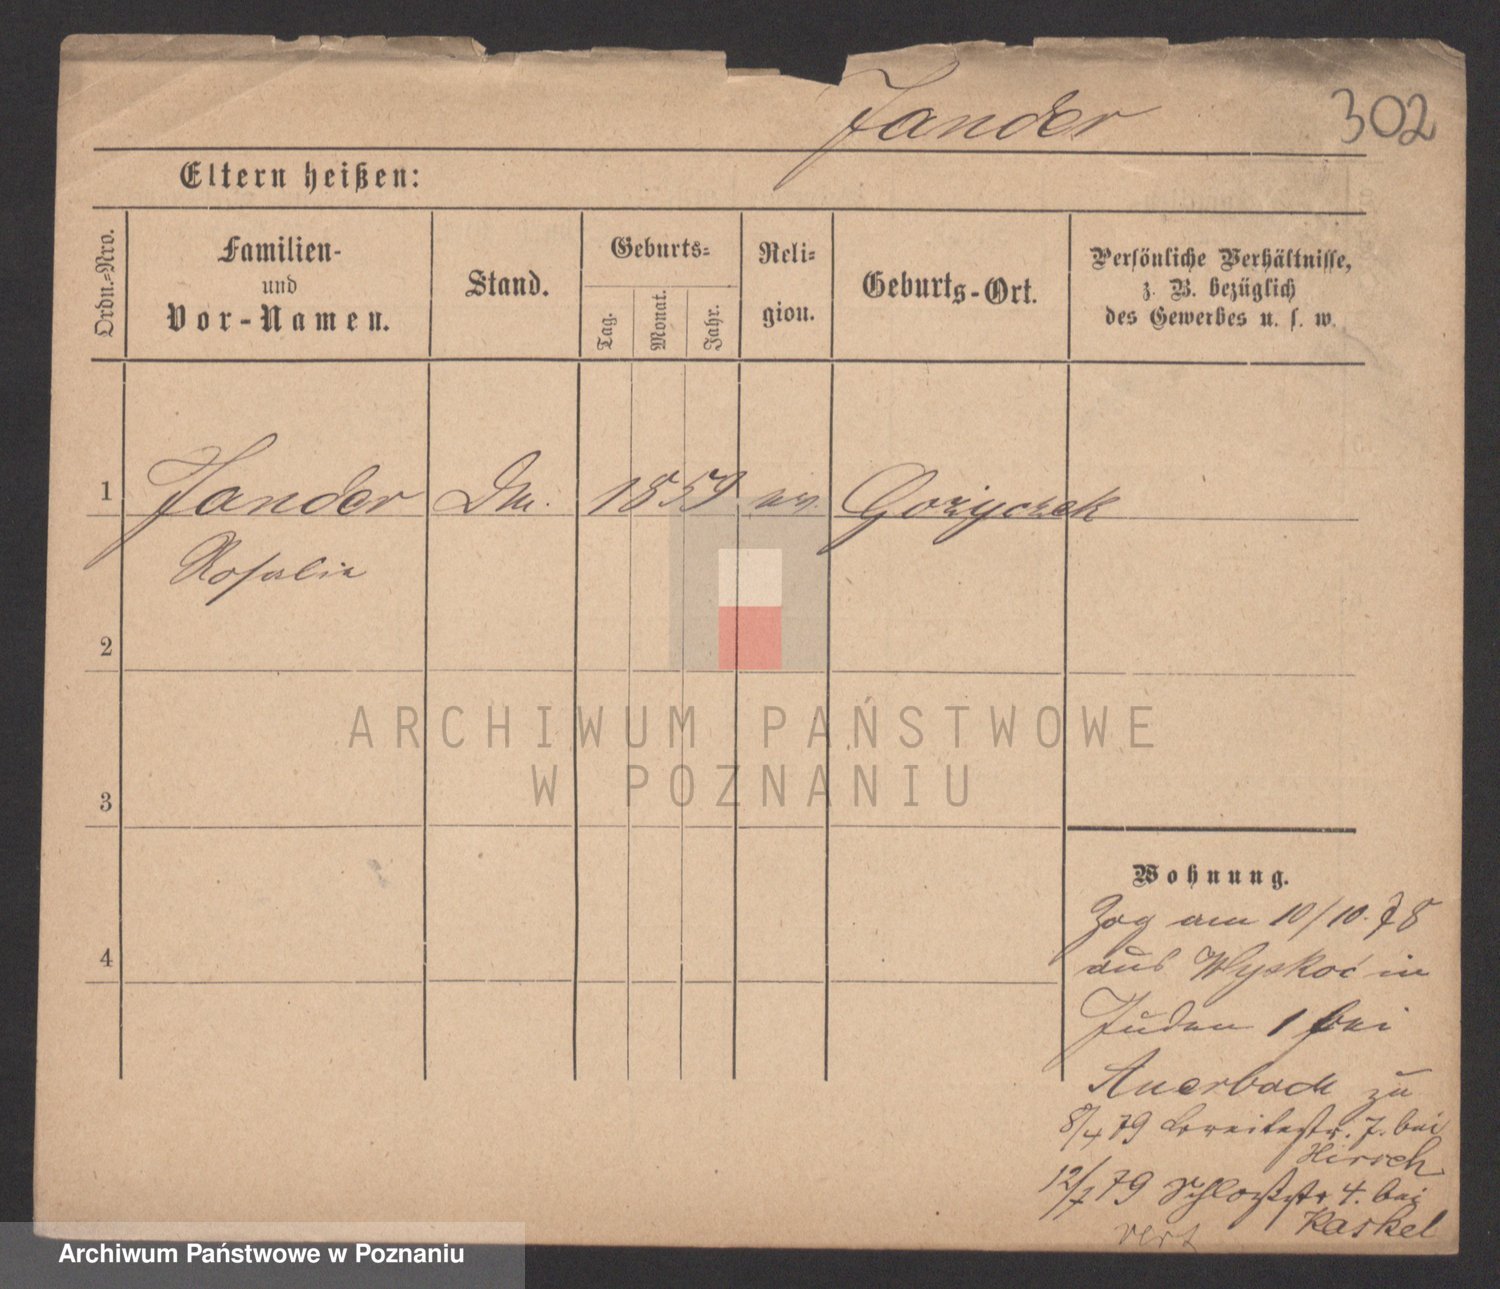 Jander
302
Eltern heißen:
Ordn.=Nro.
Familien-
und
Vor-Namen.
Stand.
Geburts=
Tag.
Monat.
Jahr.
Reli=
gion.
Geburts-Ort.
Persönliche Verhältnisse,
z. B. bezüglich
des Gewerbes u. s. w.
1 Jander 1859 Gorzyczek
Rosalie
2
3
4
ARCHIWUM PAŃSTWOWE
W POZNANIU
Wohnung.
Zog am 10/10. 78
aus Wyskoć in
Juden 1 bei
Auerbach zu
8/4 79 Breitestr. 7. bei
Hirsch
12/7 79 Schloßstr 4. bei
Kaskel
Archiwum Państwowe w Poznaniu